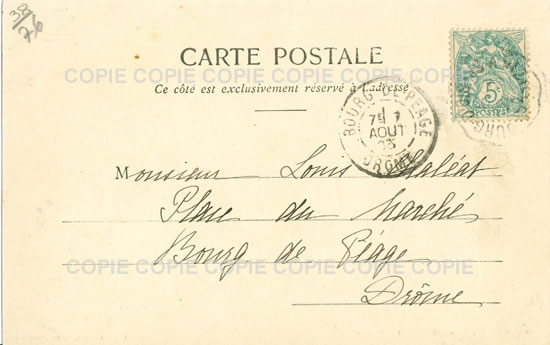 CARTE POSTALE
COPIE COPIE COPIE COPIE COPIE COPIE
Ce côté est exclusivement réservé à l'adresse
5c
POSTES
BOURG-DE-PEAGE
7
AOUT
03
DROME
Monsieur Louis
Place du Marché
Bourg de Péage
COPIE COPIE COPIE COPIE COPIE COPIE
Drôme